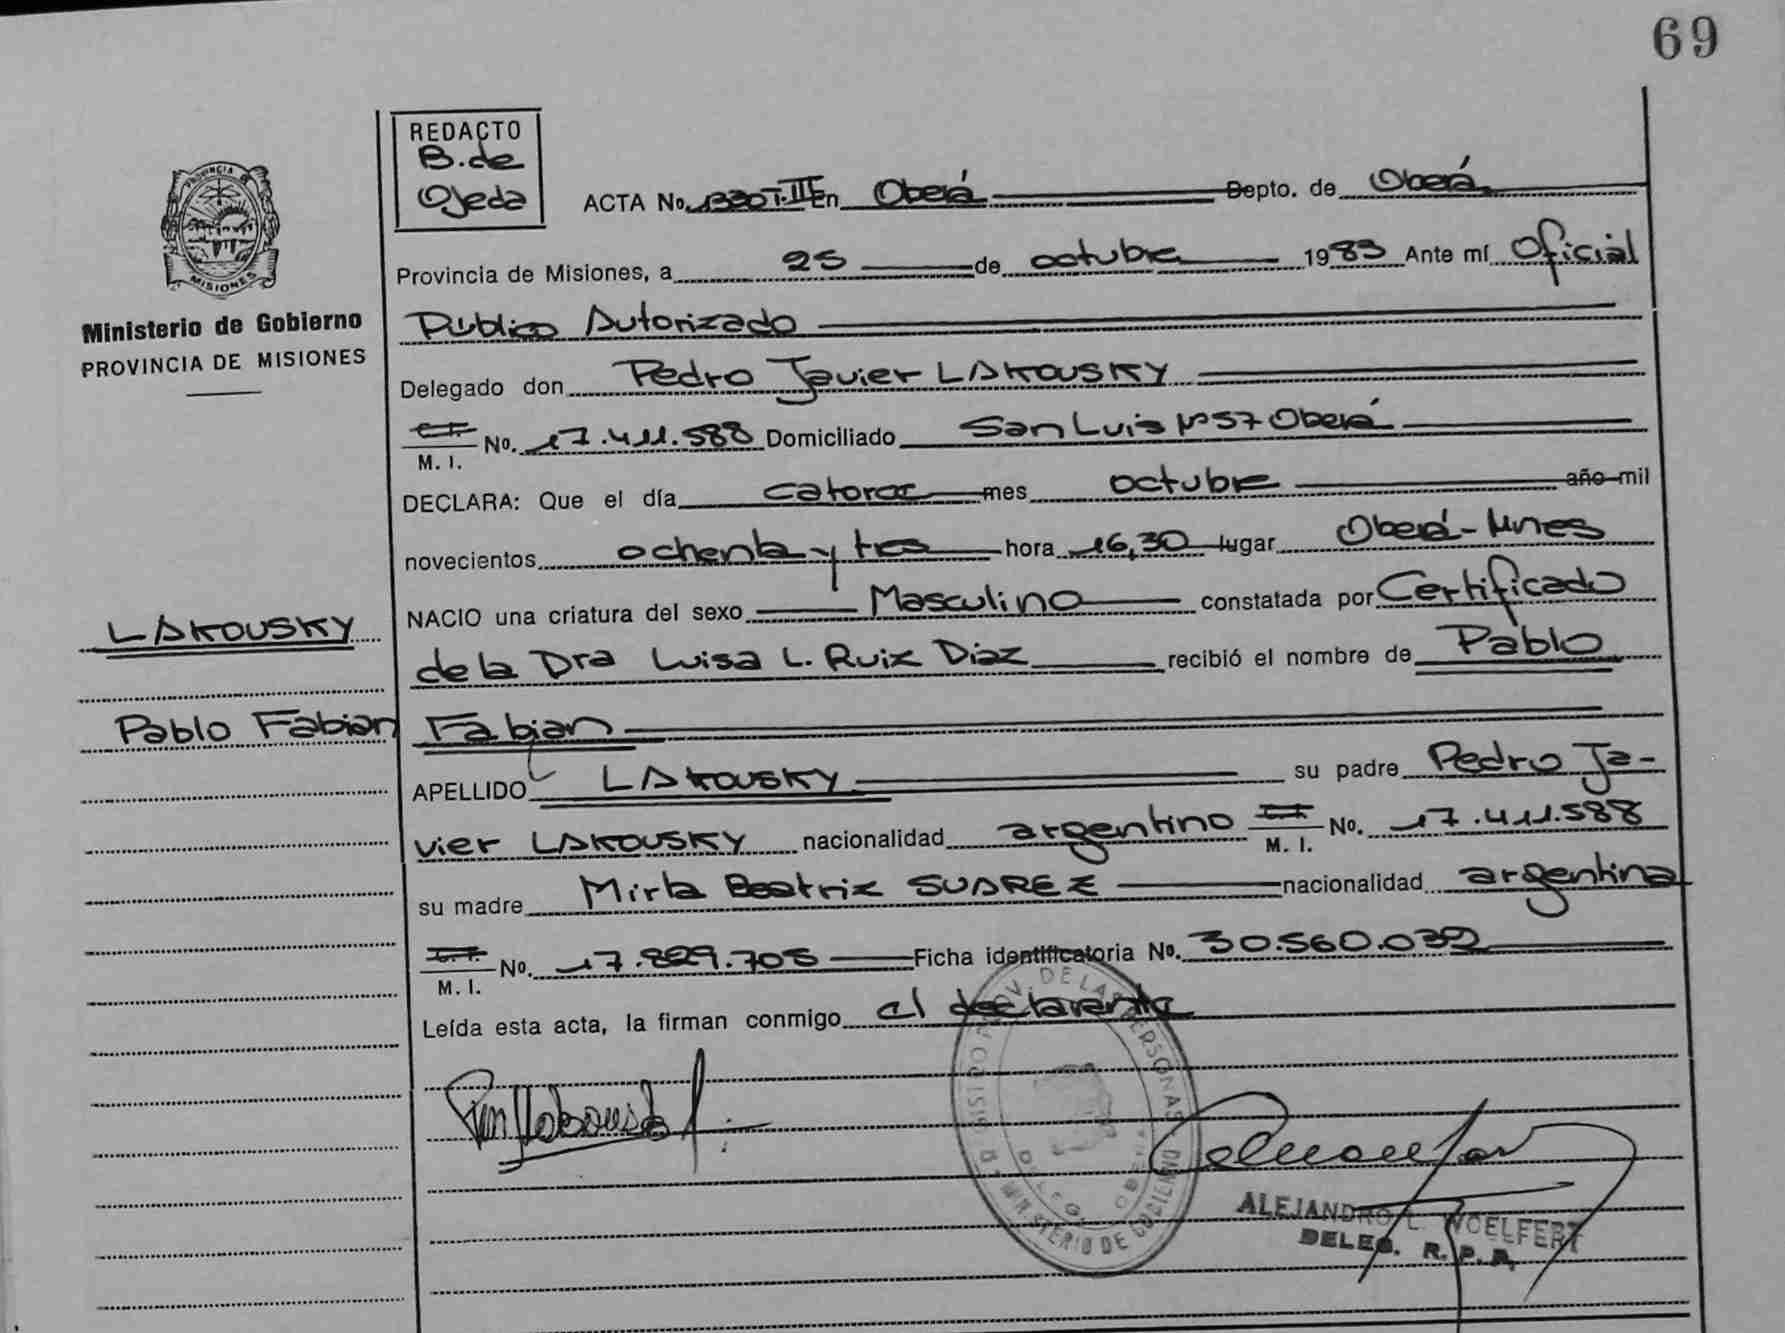 69
REDACTO
B. de
Ojeda
ACTA No. 1330 T. III En Oberá Depto. de Oberá
Provincia de Misiones, a 25 de octubre 1983 Ante mí Oficial
Público Autorizado
Delegado don Pedro Javier LAKOUSKY
C.I. M. I. No. 17.411.588 Domiciliado San Luis Nº 57 Oberá
DECLARA: Que el día catorce mes octubre año mil
novecientos ochenta y tres hora 16,30 lugar Oberá - Mnes
NACIO una criatura del sexo Masculino constatada por Certificado
de la Dra Luisa L. Ruiz Diaz recibió el nombre de Pablo
Fabian
APELLIDO LAKOUSKY su padre Pedro Ja-
vier LAKOUSKY nacionalidad argentino C.I. M. I. No. 17.411.588
su madre Mirta Beatriz SUAREZ nacionalidad argentina
C.I. M. I. No. 17.829.705 Ficha identificatoria No. 30.560.032
Leída esta acta, la firman conmigo el declarante
PROVINCIA
MISIONES
Ministerio de Gobierno
PROVINCIA DE MISIONES
LAKOUSKY
Pablo Fabian
PROV. DE LAS PERSONAS
MINISTERIO DE
ALEJANDRO L. WOELFERT
DELEG. R. P. P.